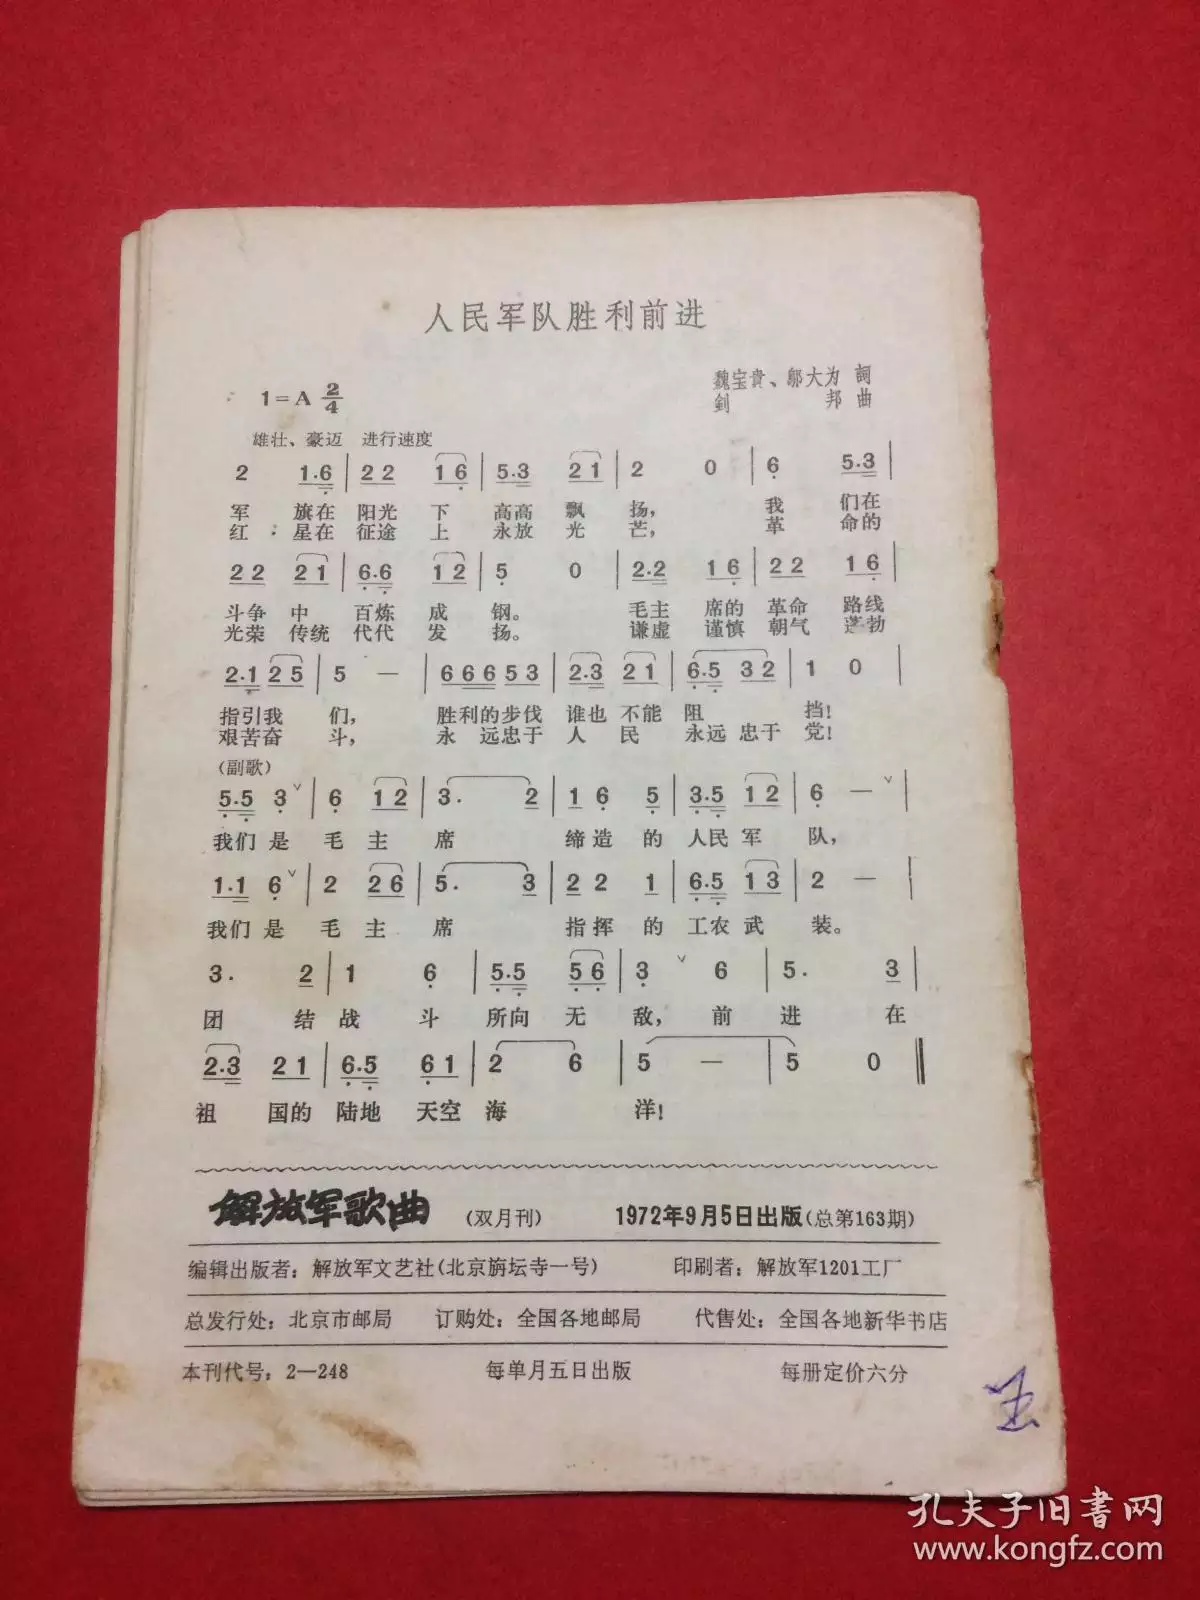 人民军队胜利前进
1=A 2/4
魏宝貴、鄔大为 詞
釗 邦 曲
雄壮、豪迈 进行速度
2 1·6 | 2 2 1 6 | 5·3 2 1 | 2 0 | 6 5·3 |
军 旗在 阳光 下 高高 飘 扬， 我 们在
红 星在 征途 上 永放 光 芒， 革 命的
2 2 2 1 | 6·6 1 2 | 5 0 | 2·2 1 6 | 2 2 1 6 |
斗争 中 百炼 成 钢。 毛主 席的 革命 路线
光荣 传统 代代 发 扬。 谦虚 谨慎 朝气 蓬勃
2·1 2 5 | 5 — | 6 6 6 5 3 | 2·3 2 1 | 6·5 3 2 | 1 0 |
指引我 们， 胜利的步伐 谁也 不能 阻 挡！
艰苦奋 斗， 永 远忠于 人 民 永远 忠于 党！
（副歌）
5·5 3 ∨ | 6 1 2 | 3· 2 | 1 6 5 | 3·5 1 2 | 6 — ∨ |
我们 是 毛 主 席 缔 造 的 人民 军 队，
1·1 6 ∨ | 2 2 6 | 5· 3 | 2 2 1 | 6·5 1 3 | 2 — |
我们 是 毛 主 席 指 挥 的 工农 武 装。
3· 2 | 1 6 | 5·5 5 6 | 3 ∨ 6 | 5· 3 |
团 结 战 斗 所向 无 敌， 前 进 在
2·3 2 1 | 6·5 6 1 | 2 6 | 5 — | 5 0 ‖
祖 国的 陆地 天空 海 洋！
解放军歌曲 （双月刊） 1972年9月5日出版（总第163期）
编辑出版者：解放军文艺社（北京旃坛寺一号） 印刷者：解放军1201工厂
总发行处：北京市邮局 订购处：全国各地邮局 代售处：全国各地新华书店
本刊代号：2—248 每单月五日出版 每册定价六分
孔夫子旧书网
www.kongfz.com